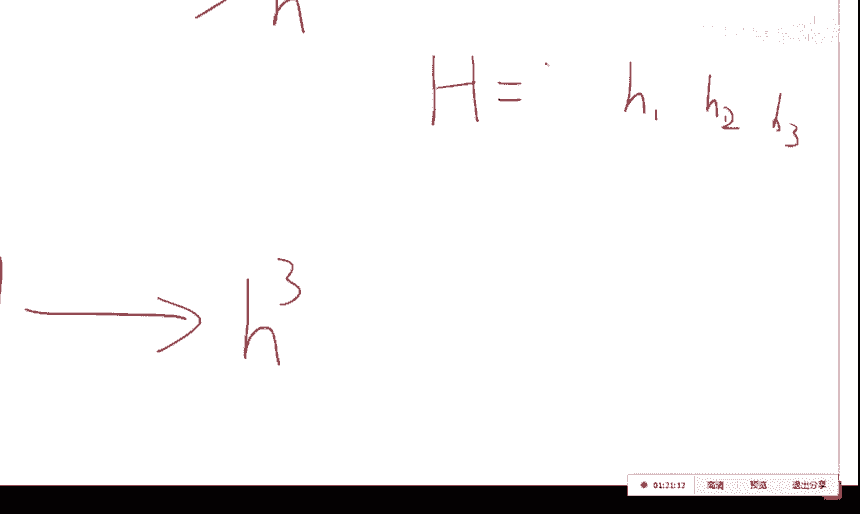 h
H = h₁ h₂ h₃
→ h³
01:21:12 高清 预览 退出分享